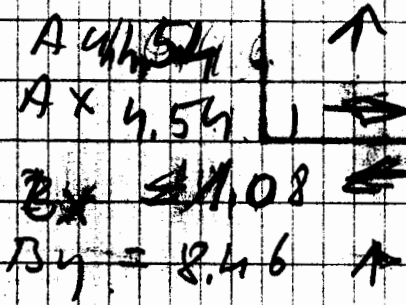 Ay 4,54 ↑
Ax 4.54 →
Bx = 1,08 ←
By = 8.46 ↑